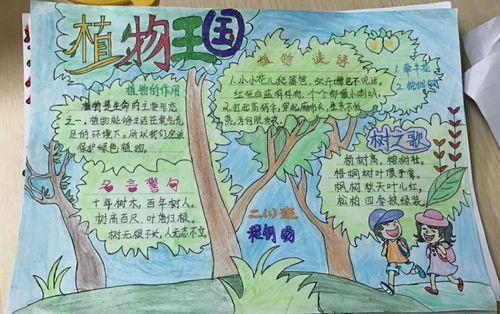 植物王国
植物的作用
植物是生命的主要形态
之一,植物能够生活在氧九九
足的环境下。所以我们应该
保护绿色植物。
名言警句
十年树木,百年树人。
树高百尺,叶落归根。
树无根不长,人无志不立。
植物谜语
1.小小花儿爬篱笆,张开嘴巴不说话,
红张白蓝
个个都像小喇叭
1.牵牛花
2.
树之歌
杨树高,榕树壮,
梧桐树叶像手掌。
枫树秋天叶儿红,
松柏四季披绿装。
二(1)班